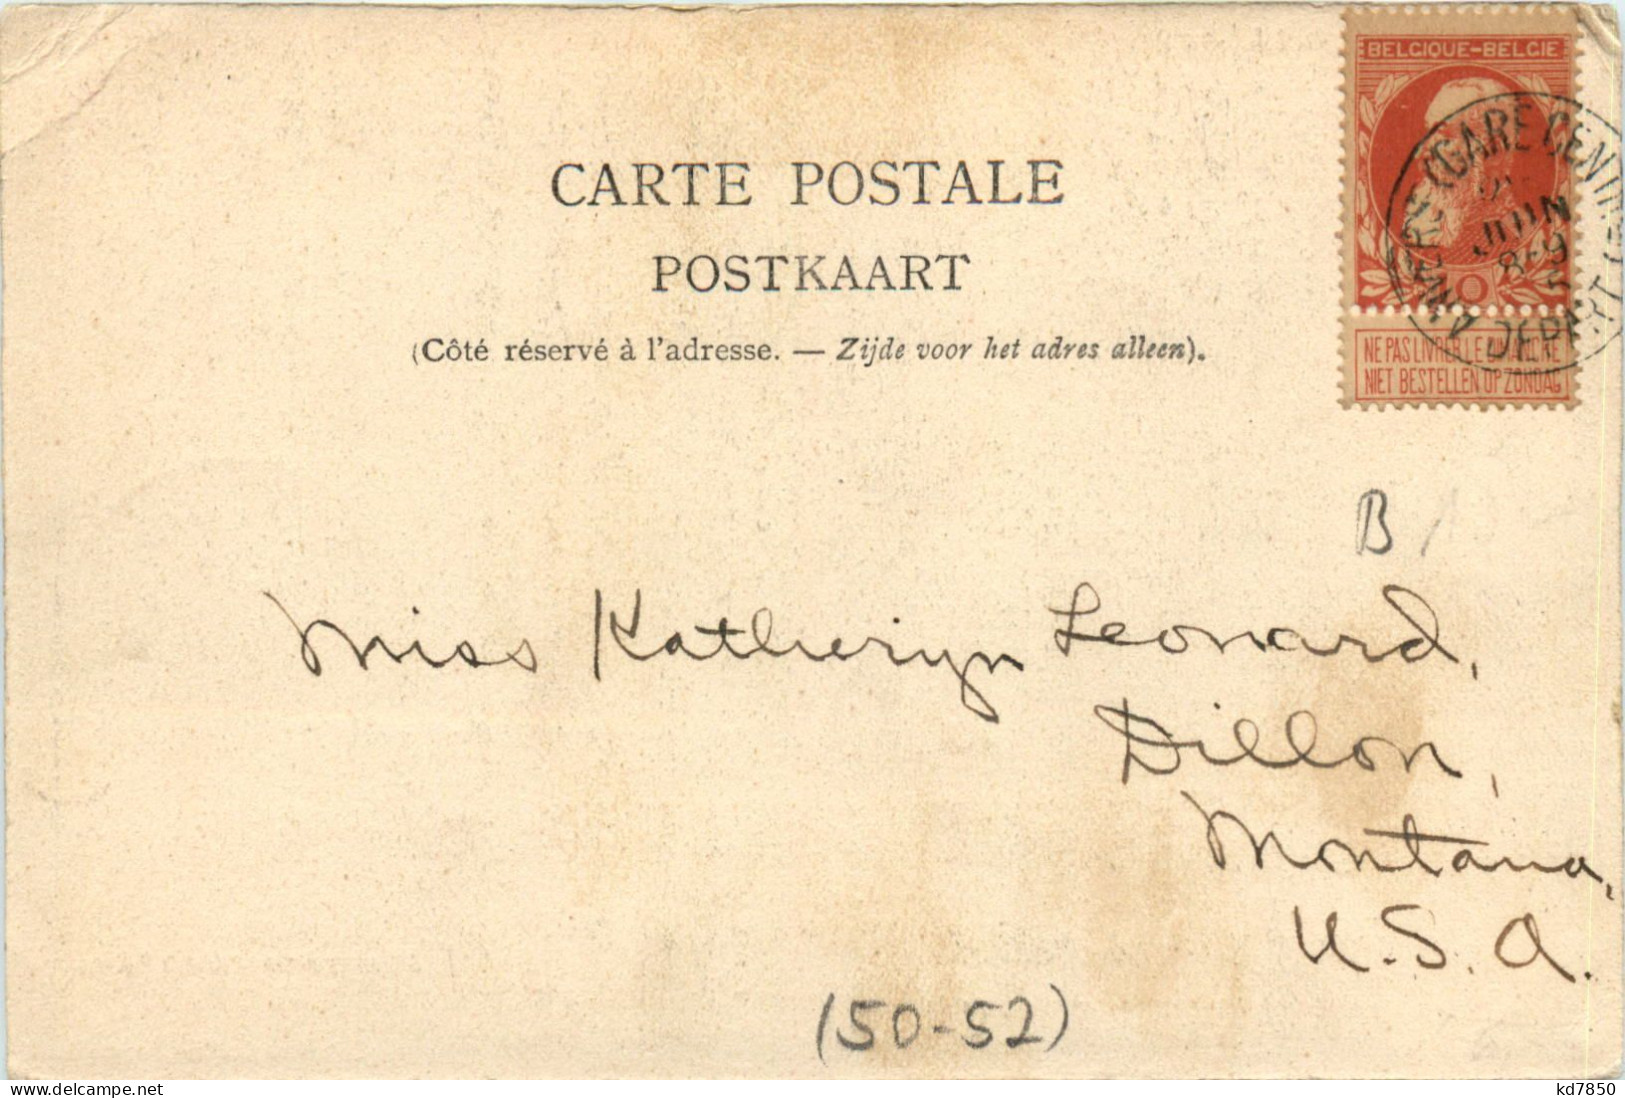 BELGIQUE-BELGIE
ANVERS (GARE CENTRALE)
JUIN
8-9
DEPART
10
NE PAS LIVRER LE DIMANCHE
NIET BESTELLEN OP ZONDAG
CARTE POSTALE
POSTKAART
(Côté réservé à l'adresse. — Zijde voor het adres alleen).
B
Miss Katheryn Leonard,
Dillon,
Montana,
U.S.A.
(50-52)
www.delcampe.net
kd7850